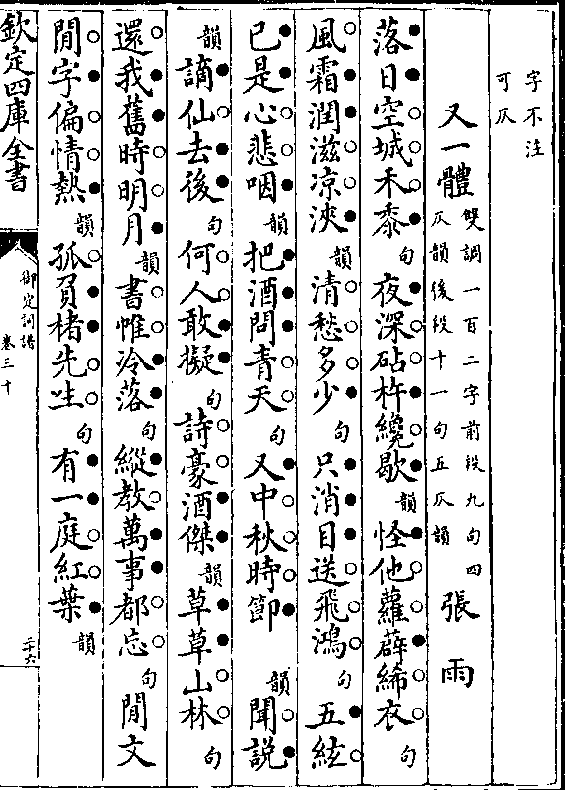 字不注
可仄
又一體 雙調一百二字前段九句四
仄韻後段十一句五仄韻 張雨
落日空城禾黍句夜深砧杵纔歇韻怪他蘿薜絺衣句
風霜潤滋涼浹韻清愁多少句只消目送飛鴻句五絃
已是心悲咽韻把酒問青天句又中秋時節韻聞説
韻謫仙去後句何人敢擬句詩豪酒傑韻草草山林句
還我舊時明月韻書帷冷落句縱教萬事都忘句閒文
閒字偏情熱韻孤負楮先生句有一庭紅葉韻
欽定四庫全書
御定詞譜
卷三十
二十六